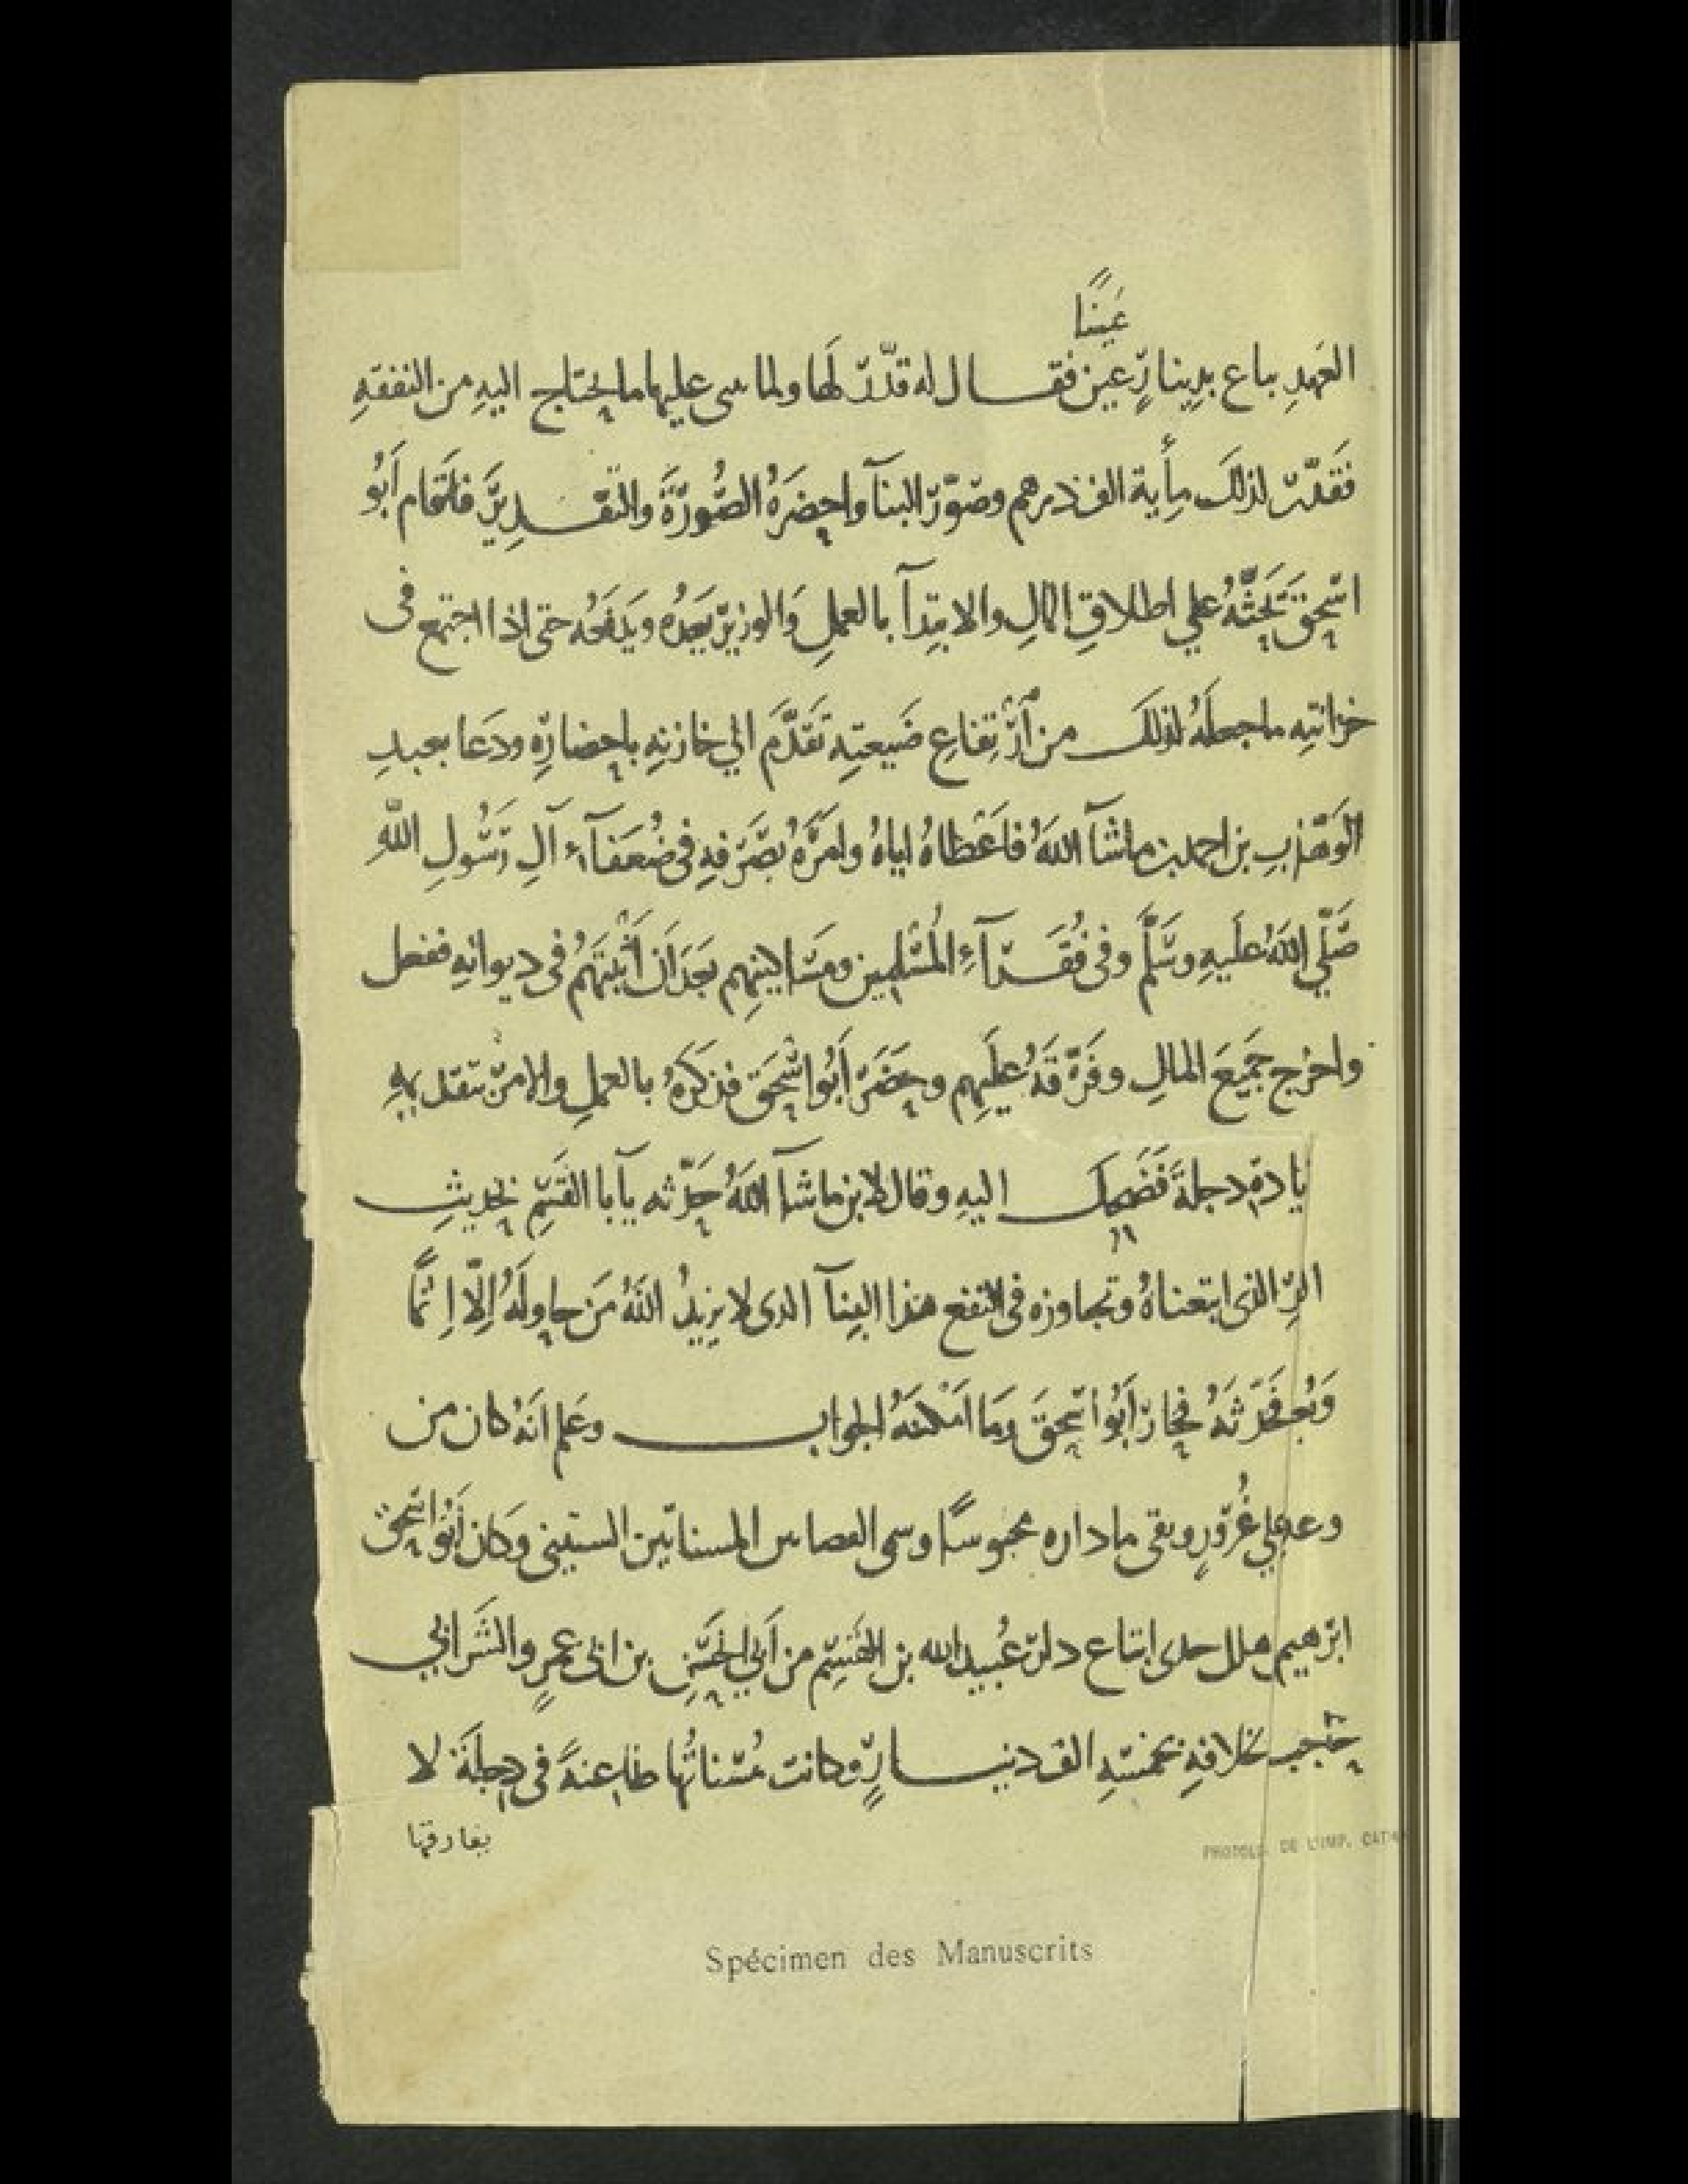 عَينًا
العَهدِ يباع بدينارٍ عين فقال له قدّر لَها ولما على عليها ما يحتاج اليهِ من النفقهِ
فَقدّر لذلكَ مِأَية الف درهم وصوّر البنآ واحضَرهُ الصُّورَةَ والتقديرَ فلمَّا قام أَبُو
اسْحقَ يَحثّهُ على اطلاقِ المالِ والابتِدآ بالعملِ وَالوزير يَعِدُه ويَدفعُه حتى اذا اجتمع فى
خزانتِه ما جعلَهُ لذلكَ من ارْتِفاعِ ضَيعتِه تَقدَّمَ الي خازنهِ باحضارِه ودَعَا بعبدِ
الوَهّابِ بن احمد بن ماشآ اللهُ فاَعْطاهُ اياهُ وامرَهُ بصَرفهِ فى ضُعَفآء آلِ رَسُولِ اللّه
صَلّي اللهُ علَيهِ وسَلَّم وفى فُقَرآءِ المُسْلِمين ومسَاكينِهِم بَعدَ اَن اَثْبَتَهُم فى ديوانهِ ففعل
واخرج جَميعَ المالِ وفَرَّقَهُ علَيهِم وحضَر اَبُو اسْحَق فذكَرَهُ بالعملِ والامر بتقديمهِ
يادة دجلةَ فضَحِكَ اليهِ وقال لابن ماشآ اللهُ حدِّثه يآبا القَسِم بحديثِ
البرِّ الذى ابتعناهُ وتجاوزه فى النفع هذا البِنآ الدى لا يزيدُ اللهُ مَن حاولَهُ اِلّا اِثمًا
وَبُعدًا فحدّثهُ فحَار اَبُو اسْحقَ ومَا اَمْكنَهُ الجواب وعَلم انَهُ كان من
وعده علي غُرورٍ وبقى ما داره محبوسًا وسمى المسناتين الستينى وَكان اَبُو اسْحق
ابرهيم هلل ابتاع دار عُبيد الله بن القَسِم من اَبي الحسَنِ بن ابى عمرٍو الشَرابي
حَاجب خلافهِ بخمسَهِ الف دينارٍ وكانت مُسَناتُها طاعنهً فى دجلَهَ لا
يفارقها
PHOTOLIT. DE L'IMP. CATH
Spécimen des Manuscrits